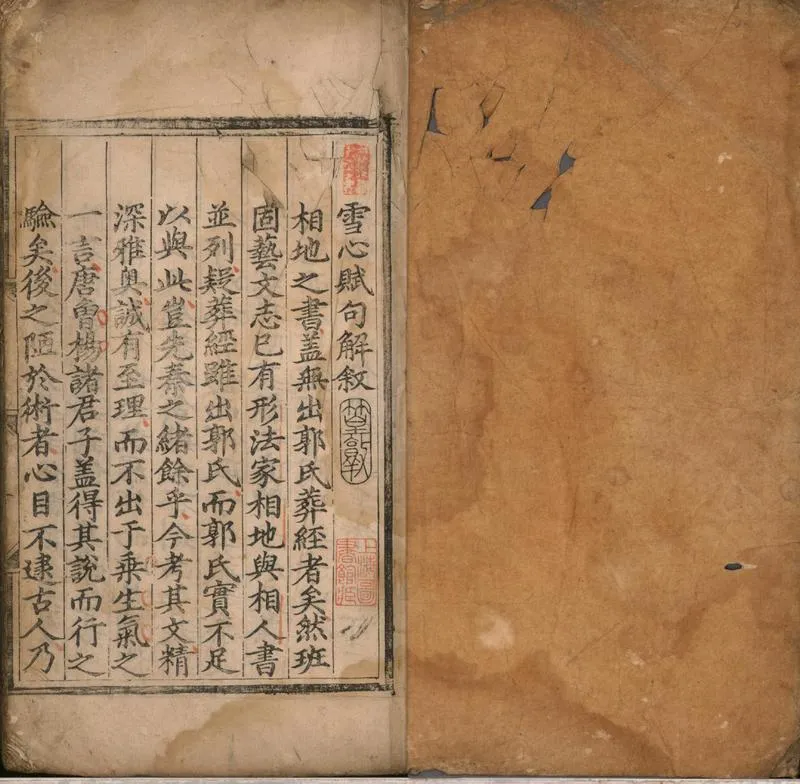 雪心賦句解敘
相地之書盖無出郭氏葬經者矣然班
固藝文志已有形法家相地與相人書
並列疑葬經雖出郭氏而郭氏實不足
以與此豈先秦之緒餘乎今考其文精
深雅奥誠有至理而不出于乗生氣之
一言唐曾楊諸君子盖得其說而行之
驗矣後之陋於術者心目不逮古人乃
上海圖
書館藏